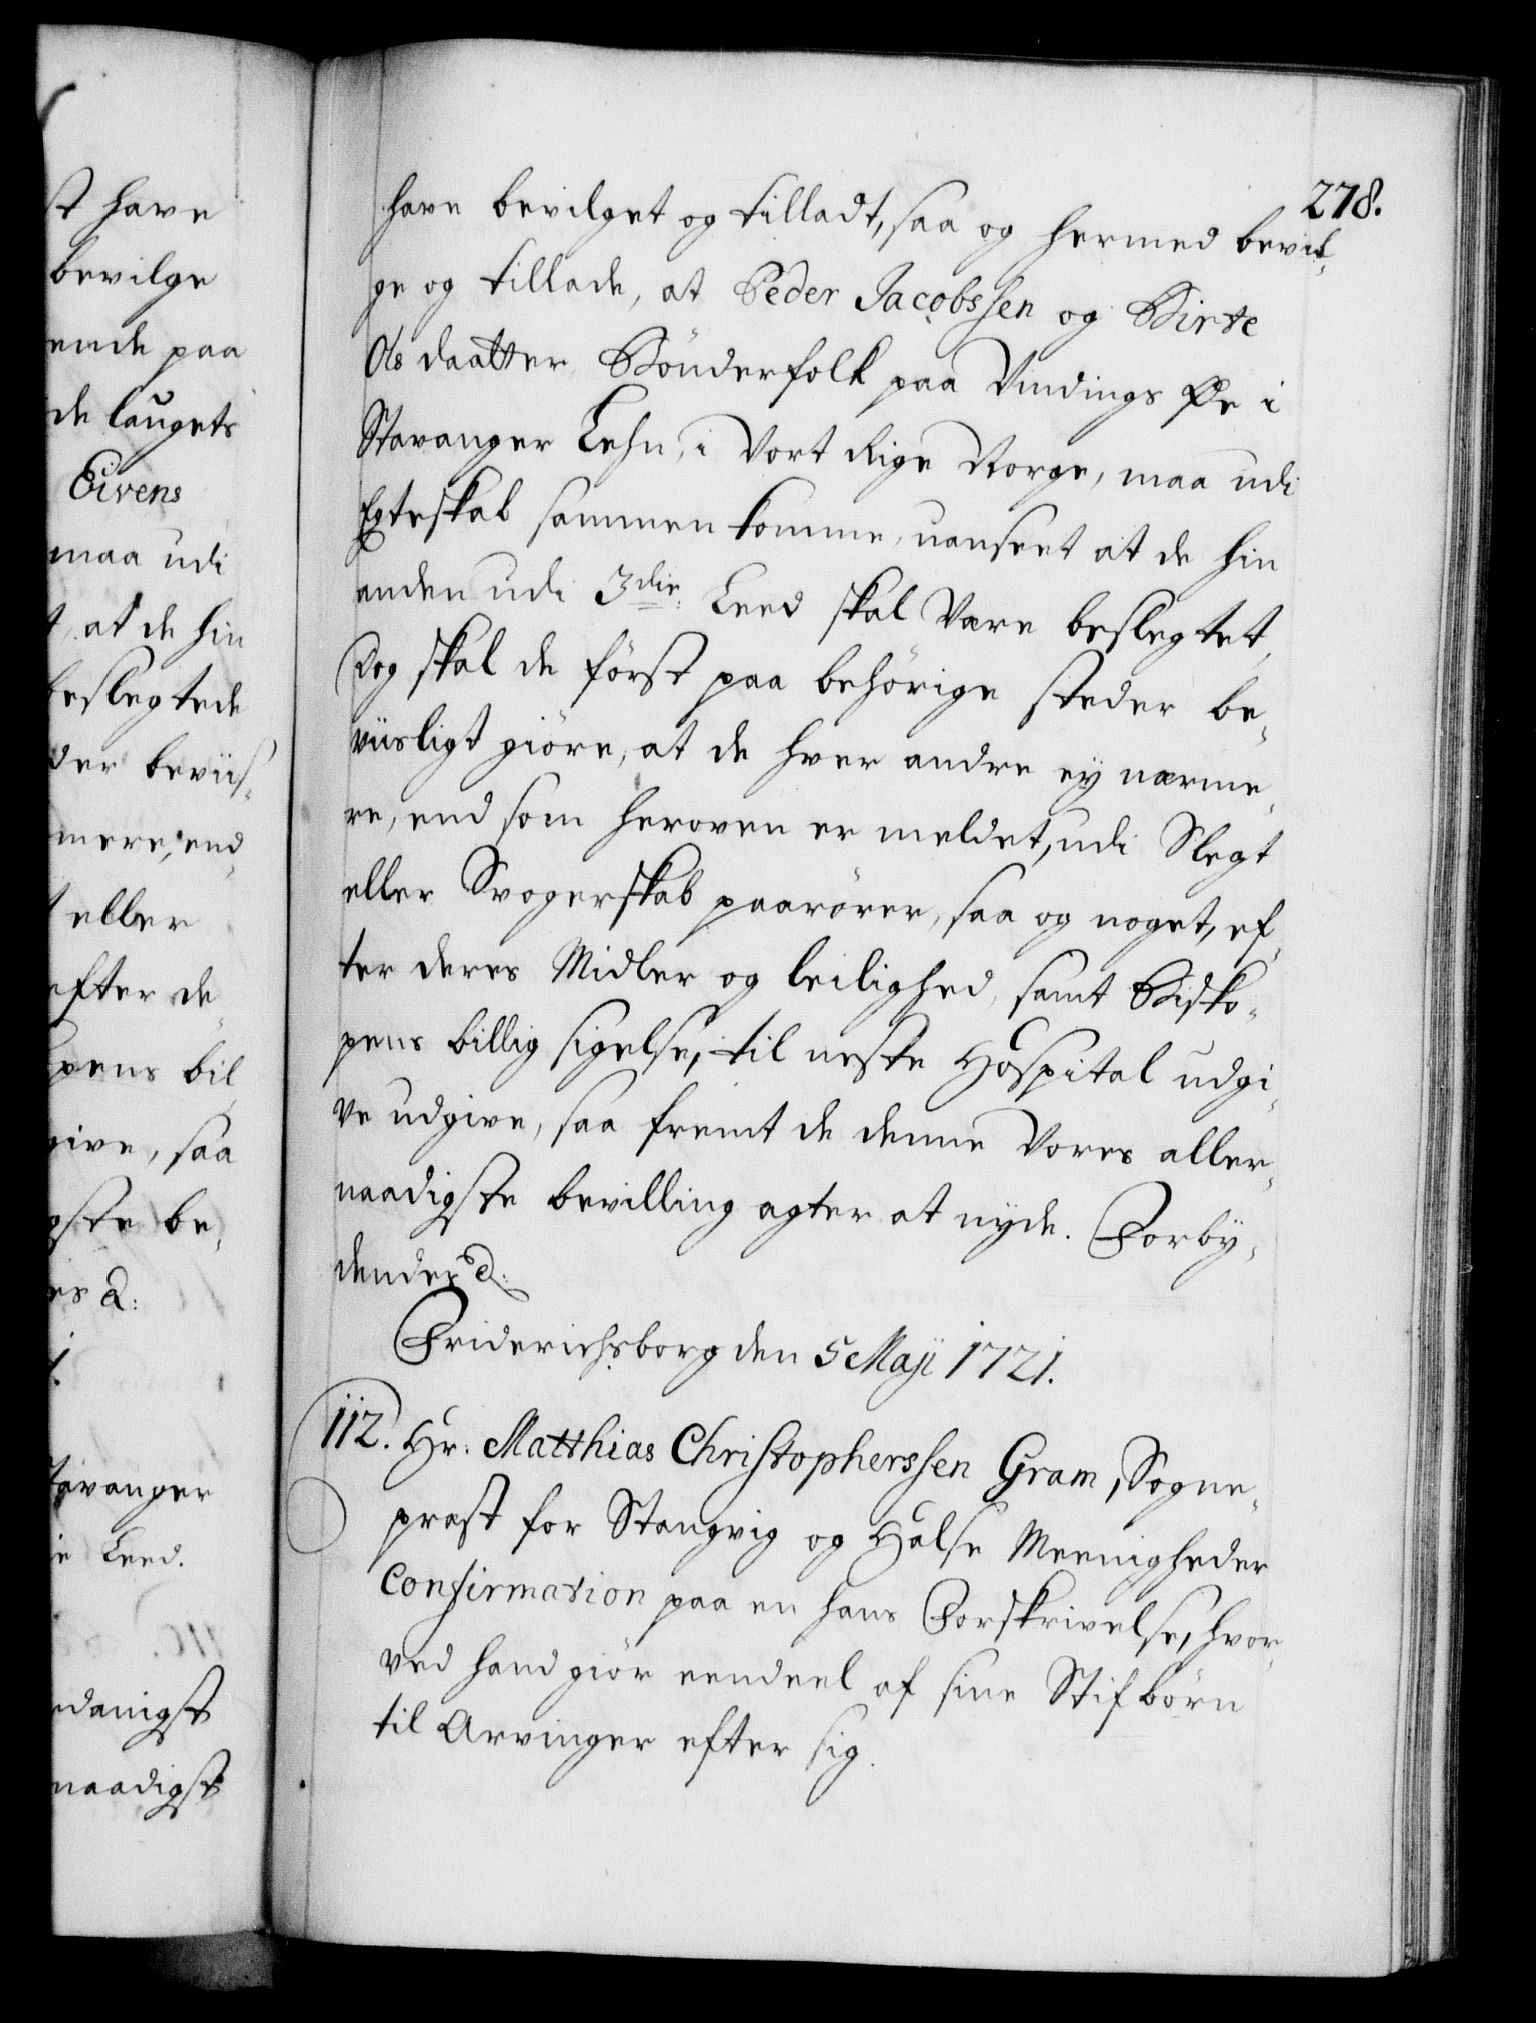 st have
bevilge
ende paa
de laugets
Eivens
maa udi
t, at de hin
beslegtede
der beviis-
mere, end
eller
efter de-
pens bil-
give, saa
gste be-
es &:
1.
Stavanger
ie Leed.
danigst
naadigst
278.
have bevilget og tilladt, saa og hermed bevil-
ge og tillade, at Peder Jacobssen og Birte
Olsdaatter Bönderfolk paa Vindings Øe i
Stavanger Lehn, i Vort Rige Norge, maa udi
Egteskab sammen komme, uanseet at de hin
anden udi 3die Leed skal være beslegtet,
Dog skal de först paa behörige steder be-
viisligt giöre, at de hver andre ey nærme-
re, end som heroven er meldet, udi Slegt
eller Svogerskab paarörer, saa og noget, ef-
ter deres Midler og leilighed, samt Bisko-
pens billig sigelse, til neste Hospital udgi-
ve udgive, saa fremt de denne Vores aller-
naadigste bevilling agter at nyde. Forby-
dendes &:
Friderichsborg den 5 Maji 1721.
112. Hr: Matthias Christopherssen Gram, Sogne-
præst for Stangvig og Halse Meenigheder
Confirmation paa en hans Forskrivelse, hvor-
ved hand giör eendeel af sine Stifbörn
til Arvinger efter sig.